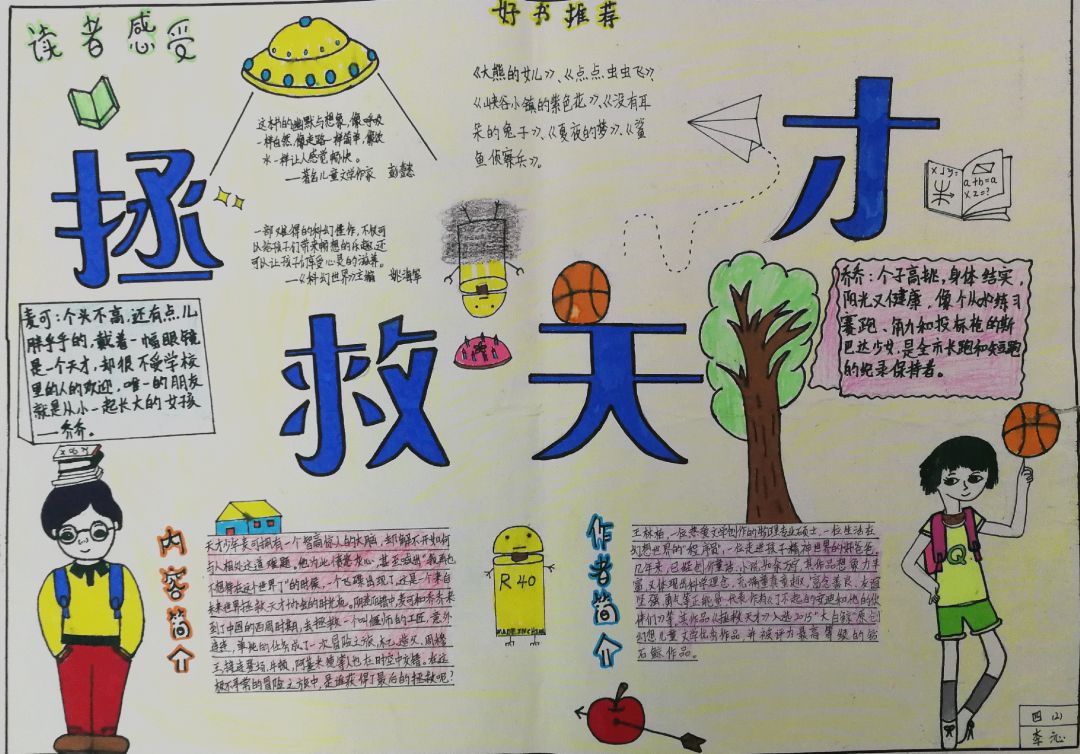 读者感受
这本书的幽默与想象，像呼吸
一样自然，像走路一样简单，像饮
水一样让人感觉畅快。
——著名儿童文学作家 彭懿
一部难得的科幻佳作，不仅可
以给孩子们带来畅想的乐趣，还
可以让孩子们享受心灵的滋养。
——《科幻世界》主编 姚海军
好书推荐
《大熊的女儿》、《点点虫虫飞》、
《峡谷小镇的紫色花》、《没有耳
朵的兔子》、《夏夜的梦》、《鲨
鱼侦察兵》。
拯
救
天
才
a+b=a
x2=?
麦可：个头不高，还有点儿
胖乎乎的，戴着一幅眼镜
是一个天才，却很不受学校
里的人的欢迎，唯一的朋友
就是从小一起长大的女孩
——乔乔。
乔乔：个子高挑，身体结实，
阳光又健康，像个从小练习
赛跑、角力和投标枪的斯
巴达少女，是全市长跑和短跑
的纪录保持者。
内容简介
天才少年麦可拥有一个智商惊人的大脑，却解不开如何
与人相处这道难题。他为此倍感灰心，甚至冒出“我再也
不想待在这个世界了”的时候，一个飞碟出现了，这是一个来自
未来世界拯救天才协会的时光机。阴差阳错中麦可和乔乔来
到了中国的西周时期，去拯救一个叫偃师的工匠，意外
连连，单纯的任务成了一次冒险之旅
王锋连登场，牛顿，阿基米德等人也在时空中交错。在这
趟不寻常的冒险之旅中，是谁获得了最后的拯救呢？
R 40
MADE IN CHINA
作者简介
王林柏，一位热爱文学创作的物理专业硕士，一位生活在
幻想世界的“程序猿”，一位走进孩子精神世界的好爸爸。
几年来，已经创作童话、小说和余万字，其作品想象力丰
富，又体现出科学理念，充满童真童趣，富含善良、友谊
坚强、勇气等正能量，代表作有《了不起的安迪和他的伙
伴们》等，其作品《拯救天才》入选2015“大白鲸”原创
幻想儿童文学优秀作品，并被评为最高等级的钻
石鲸作品。
Q
四(2)
李沁